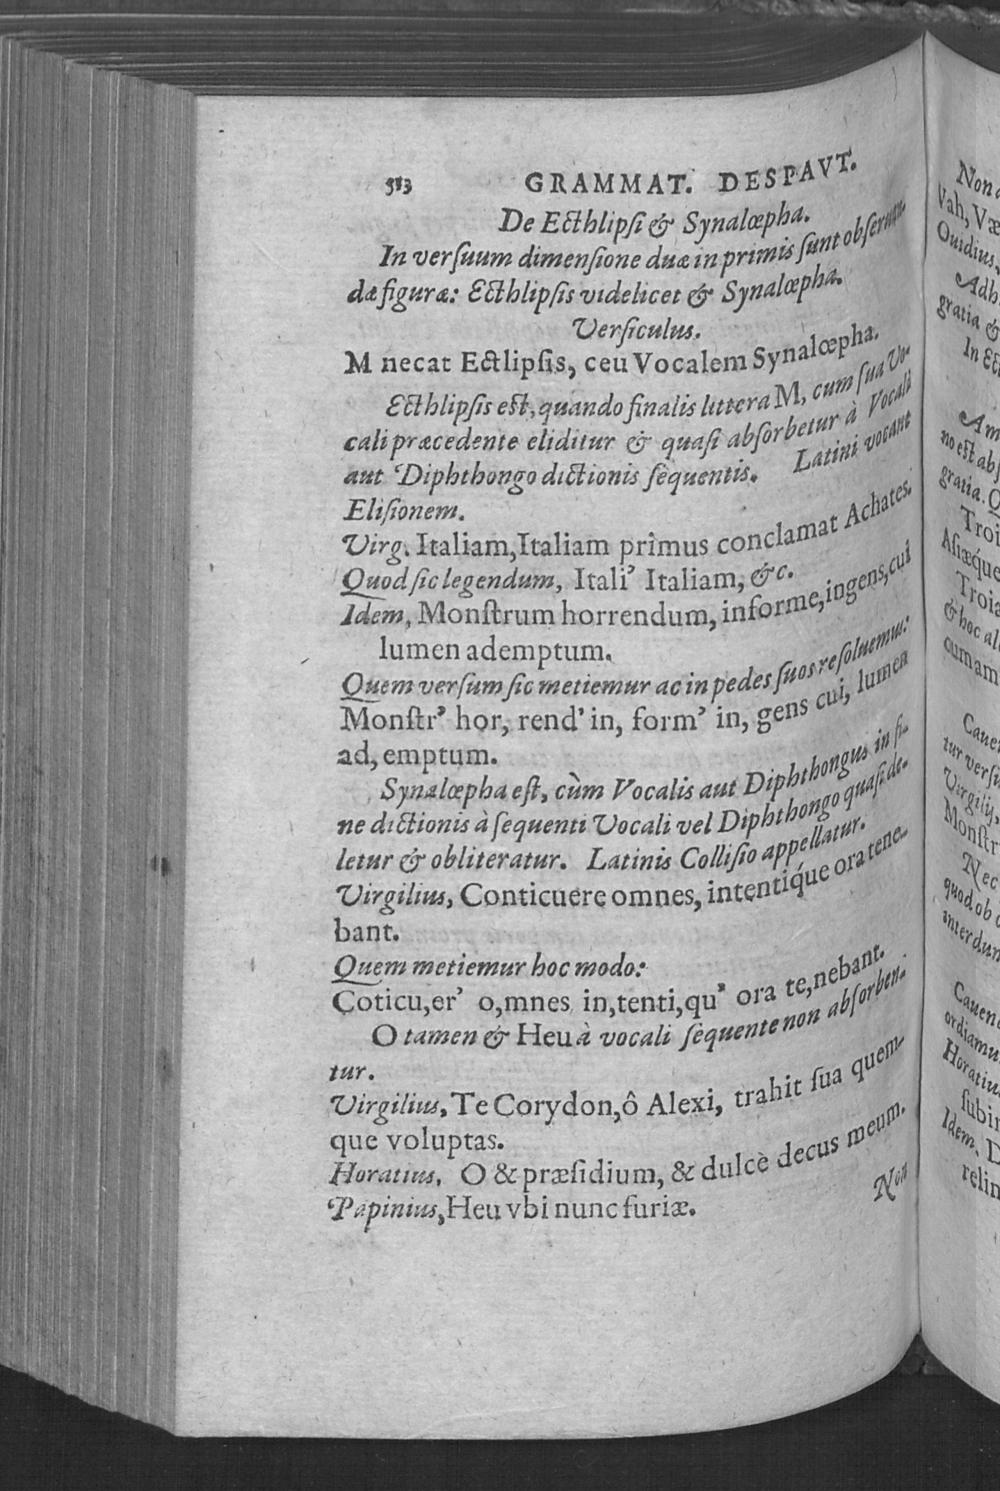 513 GRAMMAT. DESPAVT.
De Ecthlipſi & Synalœpha.
In verſuum dimenſione duæ in primis ſunt obſeruan-
dæ figuræ: Ecthlipſis videlicet & Synalœpha.
Verſiculus.
M necat Ectlipſis, ceu Vocalem Synalœpha.
Ecthlipſis est, quando finalis littera M, cum ſua Vo-
cali præcedente eliditur & quaſi abſorbetur à Vocali
aut Diphthongo dictionis ſequentis. Latini vocant
Eliſionem.
Virg. Italiam, Italiam primus conclamat Achates.
Quod ſic legendum, Itali' Italiam, &c.
Idem, Monſtrum horrendum, informe, ingens, cui
lumen ademptum.
Quem verſum ſic metiemur ac in pedes ſuos reſoluemus:
Monſtr' hor, rend' in, form' in, gens cui, lumen
ad, emptum.
Synalœpha eſt, cùm Vocalis aut Diphthongus in fi-
ne dictionis à ſequenti Vocali vel Diphthongo quaſi de-
letur & obliteratur. Latinis Colliſio appellatur.
Virgilius, Conticuere omnes, intentíque ora tene-
bant.
Quem metiemur hoc modo:
Coticu,er' o,mnes in,tenti,qu' ora te,nebant.
O tamen & Heu à vocali ſequente non abſorben-
tur.
Virgilius, Te Corydon, ô Alexi, trahit ſua quem-
que voluptas.
Horatius, O & præſidium, & dulcè decus meum.
Papinius, Heu vbi nunc furiæ.
Non
Vah, Væ
Ouidius,
gratia &
In
gratia.
Troi
Aſiæque
Troia
& hoc al
cum am
tur verſu
Virgilij,
Monſtr
Nec
quod ob
interdum
ordiamu
Horatius
ſubir
Idem.
relin